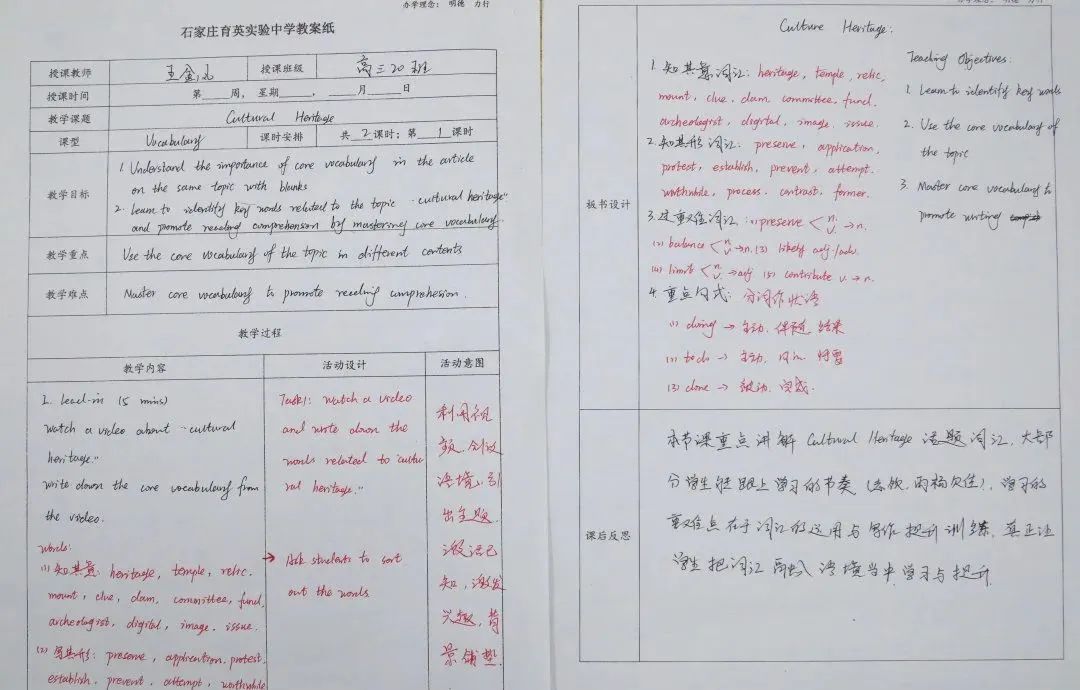 办学理念： 明德 力行
石家庄育英实验中学教案纸
授课教师 授课班级 高三20班
授课时间 第 周，星期 ， 月 日
教学课题 Cultural Heritage
课型 Vocabulary 课时安排 共 2 课时；第 1 课时
教学目标
1. Understand the importance of core vocabulary in the article
on the same topic with blanks
2. learn to identify key words related to the topic "cultural heritage"
and promote reading comprehension by mastering core vocabulary.
教学重点 Use the core vocabulary of the topic in different contents
教学难点 Master core vocabulary to promote reading comprehesion.
教学过程
教学内容 活动设计 活动意图
I. lead-in (5 mins)
watch a video about "cultural
heritage."
write down the core vocabulary from
the video.
words:
(1) 知其意: heritage, temple, relic.
mount, clue, dam, committee, fund,
archeologist, digital, image, issue.
(2) 写其形: preserve, application, protest,
establish, prevent, attempt, worthwhile
Task1: watch a video
and write down the
words related to "cultu
ral heritage."
→ Ask students to sort
out the words
利用视
频,创设
语境,引
出主题
激活已
知,激发
兴趣,背
景铺垫
办学理念： 明德 力行
板书设计
Culture Heritage:
1. 知其意词汇: heritage, temple, relic,
mount, clue, dam, committee, fund.
archeologist, digital, image, issue.
2. 知其形词汇: preserve, application,
protest, establish, prevent, attempt.
worthwhile, process. contrast, former.
3. 过重难词汇: (1) preserve < n. v. → n.
(2) balance < n. v. → n. (3) likely adj./adv.
(4) limit < n. v. → adj (5) contribute v. → n.
4. 重点句式: 分词作状语
(1) doing → 主动, 伴随, 结果
(2) to do → 主动, 目的,
(3) done → 被动, 完成.
Teaching Objectives:
1. Learn to identify key words
2. Use the core vocabulary of
the topic
3. Master core vocabulary to
promote writing
课后反思
本节课重点讲解 Cultural Heritage 话题词汇, 大部
分学生能跟上学习的节奏 学习的
重难点在于词汇的运用与写作提升训练, 真正让
学生把词汇融入语境当中学习与提升